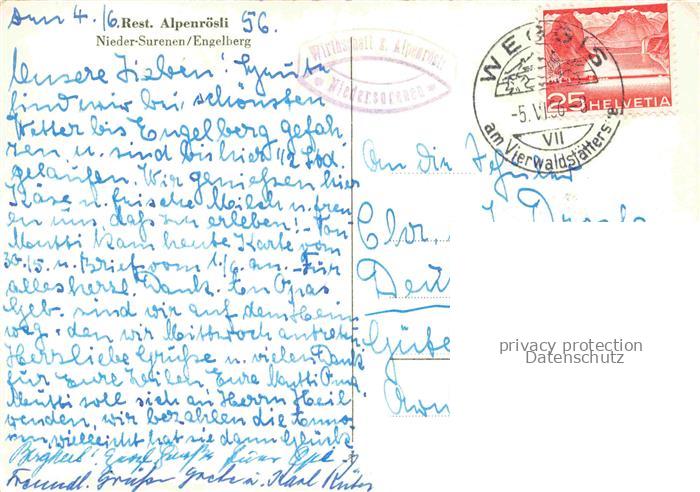 den 4./6. 56.
Rest. Alpenrösli
Nieder-Surenen/Engelberg
Unsere Lieben! Heute
sind wir bei schönsten
Wetter bis Engelberg gefah-
ren u. sind bis hier 1/2 Std.
gelaufen. Wir genießen hier
Käse u. frische Milch u. freu-
en uns, daß zu erleben! - Von
Mutti kam heute Karte vom
30./5. u. Brief vom 1./6. an. - Für
alles herzl. Dank. Zu Opas
Geb. sind wir auf dem Heim
weg, den wir Mittwoch antreten
Herzliebe Grüße u. vielen Dank
für Eure Zeilen Eure Mutti
Mutti soll sich an Herrn Heil
wenden, wir bezahlen die
vielleicht hat sie dann Glück.
Grüße Euer Opa
Freundl. Grüße Grete u. Karl
Wirthschaft z. Alpenrösli
Niedersurenen
WEGGIS
-5.VI.56
VII
am Vierwaldstätterse
25 HELVETIA
An die Schüler
Deu
privacy protection
Datenschutz